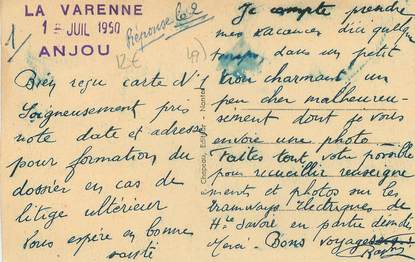 LA VARENNE
1 JUIL 1950
ANJOU
Réponse le 2
1/
12€
49
Bien reçu carte N°1
Soigneusement pris
note date et adresse
pour formation du
dossier en cas de
litige ultérieur
Vous espère en bonne
santé
F. Chapeau, Editeur - Nantes
Je compte prendre
mes vacances d'ici quelque
temps, dans un petit
trou charmant un
peu cher malheureu-
sement dont je vous
envoie une photo -
Faites tout votre possible
pour recueillir renseigne
ments et photos sur les
tramways électriques de
Hte Savoie en partie
Merci - Bons voyages